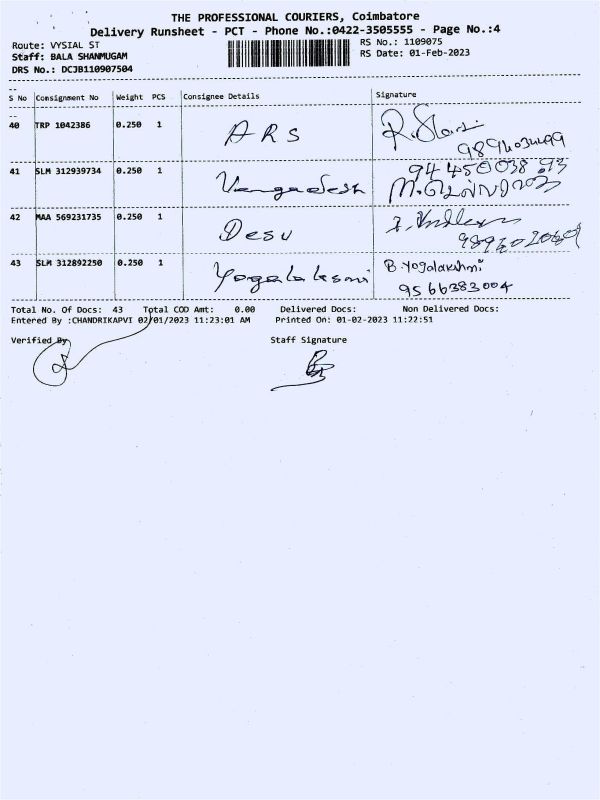 THE PROFESSIONAL COURIERS, Coimbatore
Delivery Runsheet - PCT - Phone No.:0422-3505555 - Page No.:4
Route: VYSIAL ST
RS No.: 1109075
Staff: BALA SHANMUGAM
RS Date: 01-Feb-2023
DRS No.: DCJB110907504
S No Consignment No Weight PCS Consignee Details Signature
40 TRP 1042386 0.250 1 ARS
41 SLM 312939734 0.250 1 Vengadesh
42 MAA 569231735 0.250 1 Desu
43 SLM 312892250 0.250 1 Yogalaksmi B. Yogalakshmi
9566383004
Total No. Of Docs: 43 Total COD Amt: 0.00 Delivered Docs: Non Delivered Docs:
Entered By :CHANDRIKAPVI 02/01/2023 11:23:01 AM Printed On: 01-02-2023 11:22:51
Verified By Staff Signature